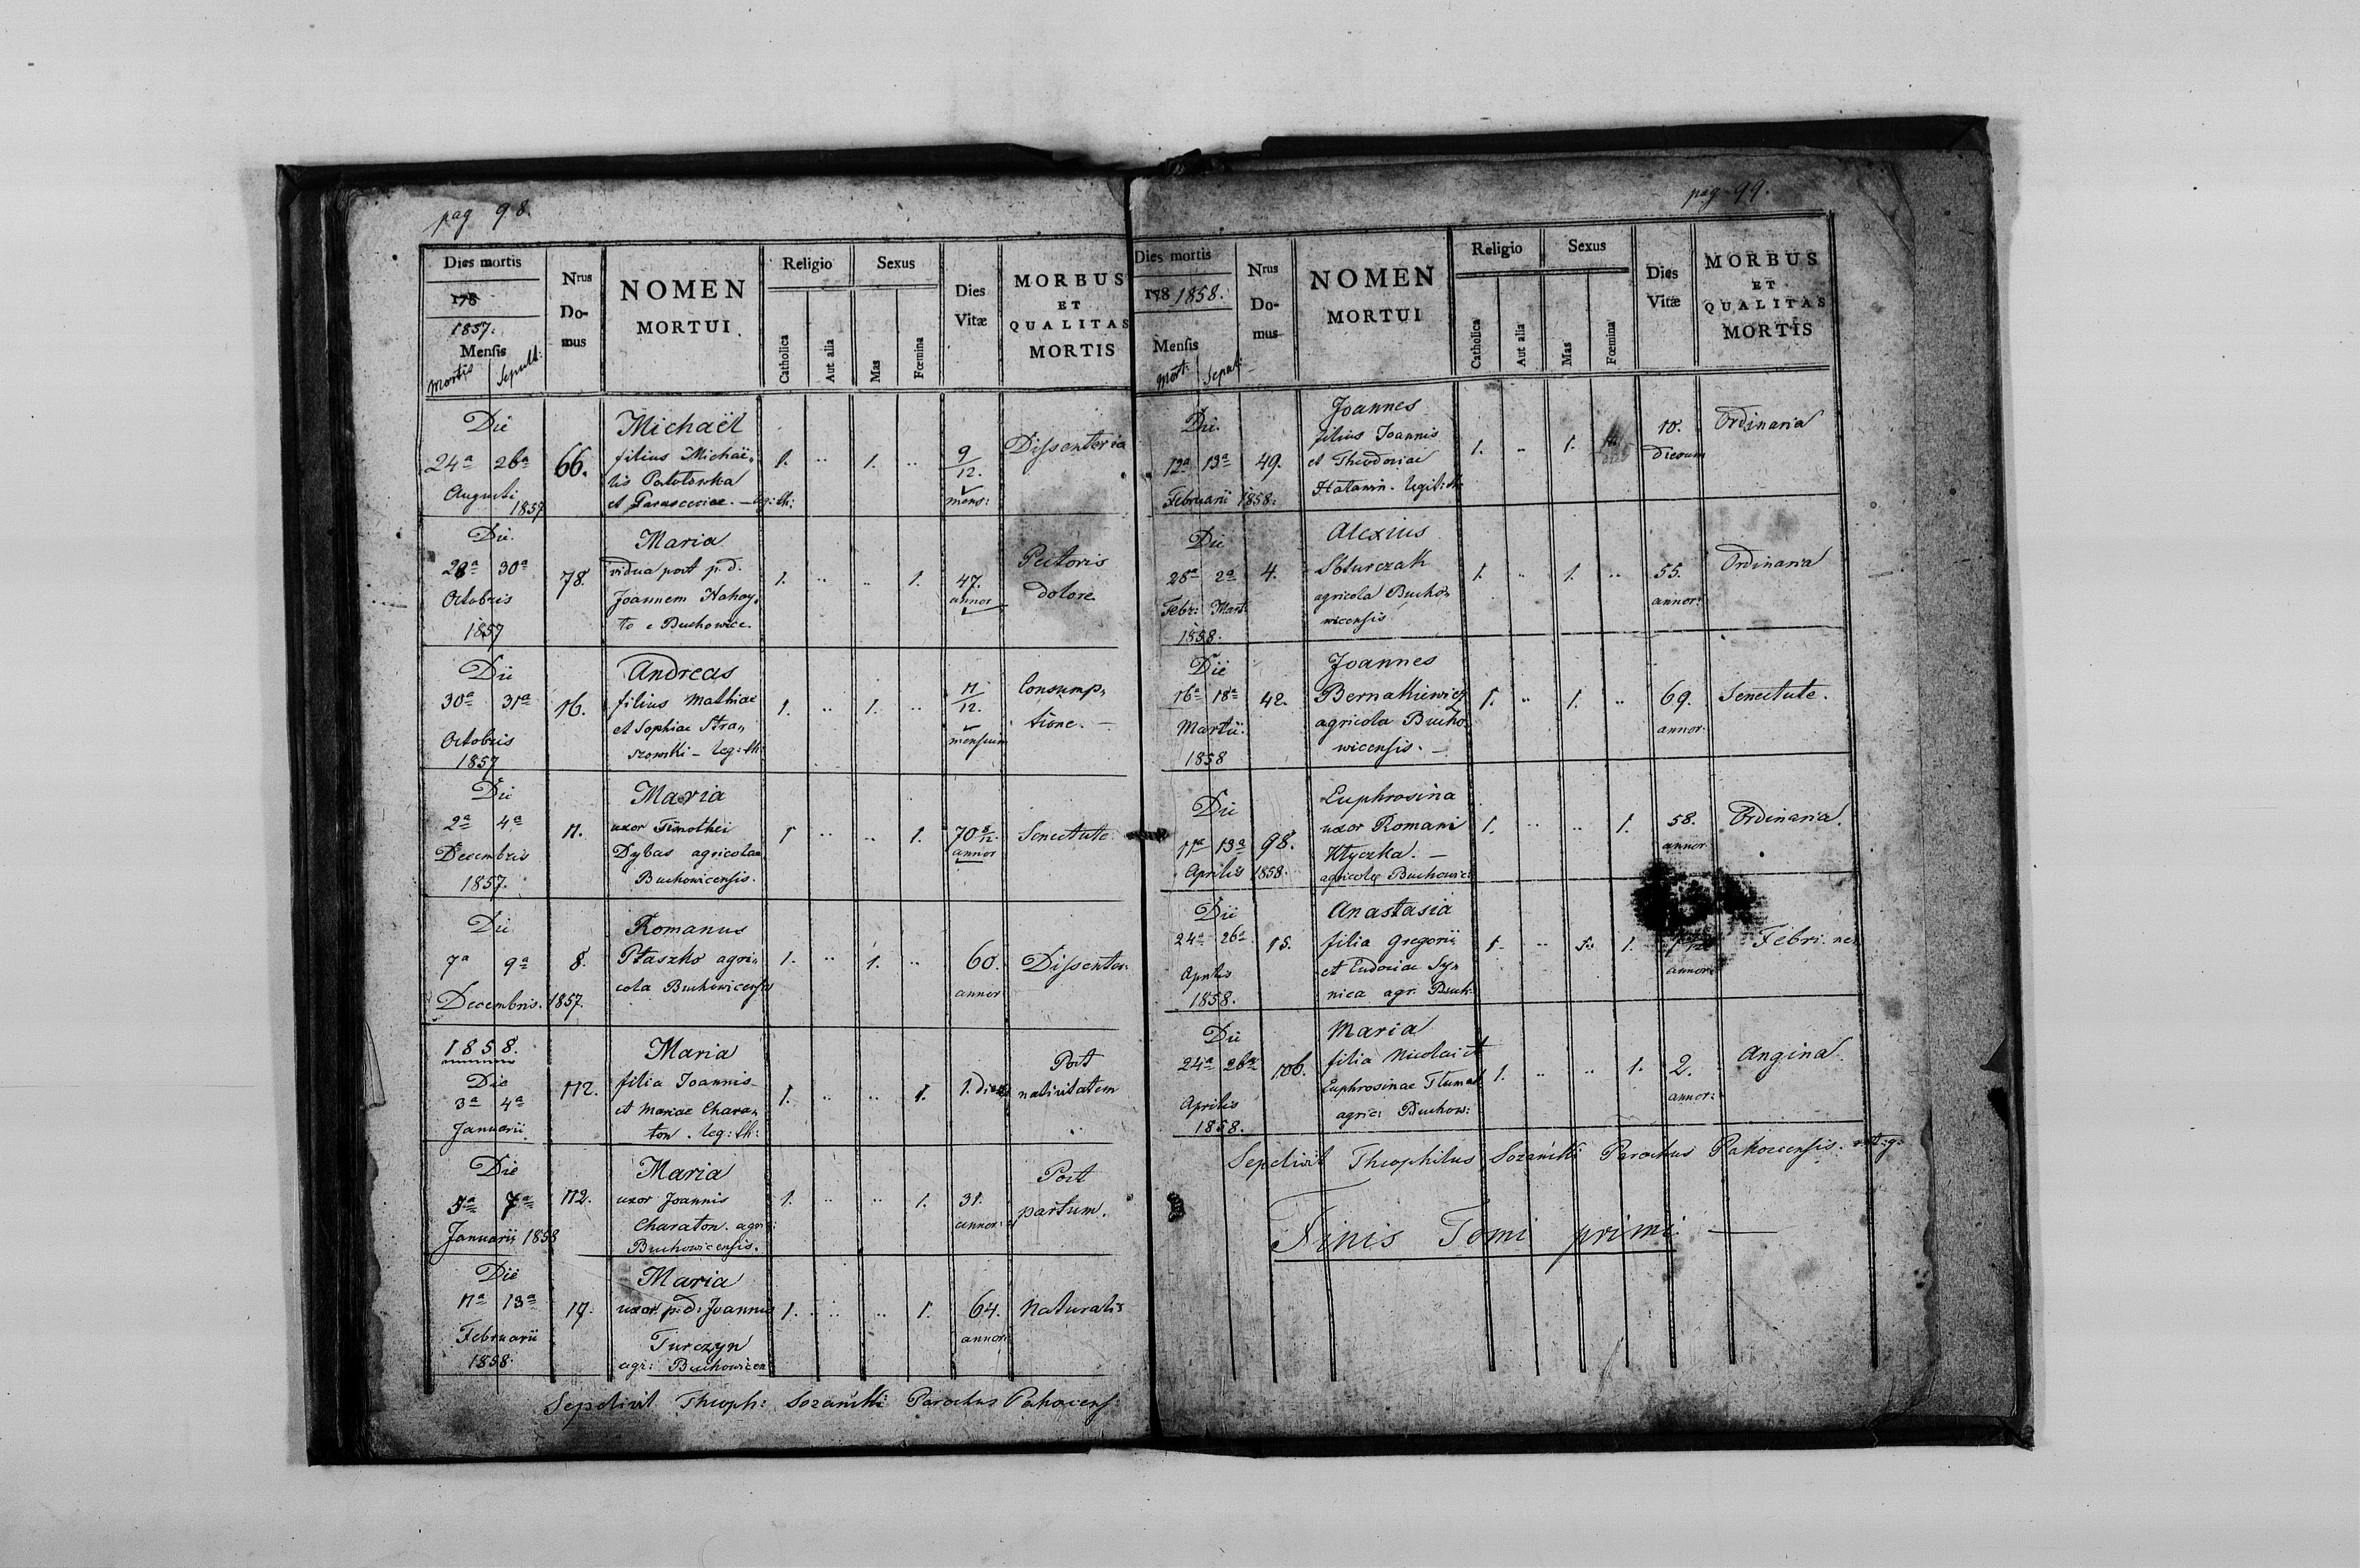 pag 98.
Dies mortis
178
1857.
Mensis
Mortis Sepult:
Nrus
Do-
mus
NOMEN
MORTUI
Religio
Catholica
Aut alia
Sexus
Mas
Fœmina
Dies
Vitæ
MORBUS
ET
QUALITAS
MORTIS
Die
24a 26a
Augusti
1857
66.
Michaël
filius Michaë„
lis
et Parasceviae. — leg: th:
1. „ 1. „
9
12.
mens:
Dissenteria
Die
28a 30a
Octobris
1857
78.
Maria
vidua post p. d.
Joannem Nahay„
ło e Buchowice.
1. „ „ 1.
47.
annor
Pectoris
dolore
Die
30a 31a
Octobris
1857
16.
Andreas
filius Mathiae
et Sophiae Stra„
szowski – Leg: th:
1. „ 1. „
11
12.
mensium
Consump„
tione. —
Die
2a 4a
Decembris
1857.
11.
Maria
uxor Timothei
Dybas agricolae
Buchowicensis.
1 „ „ 1.
70
annor
Senectute.
Die
7a 9a
Decembris. 1857.
8.
Romanus
Ptaszko agri„
cola Buchowicensis
1. „ 1. „
60.
annor
Dissenter:
1858.
Die
3a 4a
Januarii
112.
Maria
filia Joannis
et Mariae Chara„
ton. Leg: th:
1. „ „ 1.
1. Diei
Post
nativitatem
Die
5a 7a
Januarii 1858
112.
Maria
uxor Joannis
Charaton. agri:
Buchowicensis.
1. „ „ 1.
31.
annor:
Post
partum.
Die
11a 13a
Februarii
1858.
17.
Maria
uxor p: d: Joannis
Turczyn
agr: Buchowicen
1. „ „ 1.
64.
annor:
Naturalis
Sepelivit Theoph: Sozański Parochus Pakocens:
pag 99.
Dies mortis
178 1858.
Mensis
Mort: Sepult:
Nrus
Do-
mus
NOMEN
MORTUI
Religio
Catholica
Aut alia
Sexus
Mas
Fœmina
Dies
Vitæ
MORBUS
ET
QUALITAS
MORTIS
Die
12a 13a
Februarii 1858.
49.
Joannes
filius Joannis
et Theodoziae
Legit: th:
1. „ 1.
10.
Dierum
Ordinaria
Die
28a 2a
Febr: Mart:
1858.
4.
Alexius
agricola Bucho„
wicensis
1. „ 1. „
55.
annor:
Ordinaria
Die
16a 18a
Martii.
1858
42.
Joannes
Bernakiewicz
agricola Bucho„
wicensis. —
1. „ 1. „
69.
annor.
Senectute.
Die
11a 13a
Aprilis 1858.
98.
Euphrosina
uxor Romani
Kłyczka. —
agricolae Buchowic:
1. „ „ 1.
58.
annor.
Ordinaria.
Die
24a 26a
Aprilis
1858.
15.
Anastasia
filia Gregorii
et Eudoxiae Syn
nica agr. Buch:
1. „ 1.
annor:
Febri
Die
24a 26a
Aprilis
1858.
106.
Maria
filia Nicolai et
Euphrosinae
agric: Buchow:
1. „ „ 1.
2.
annor:
Angina.
Sepelivit Theophilus Sozański Parochus Pakocensis.
Finis Tomi primi. —